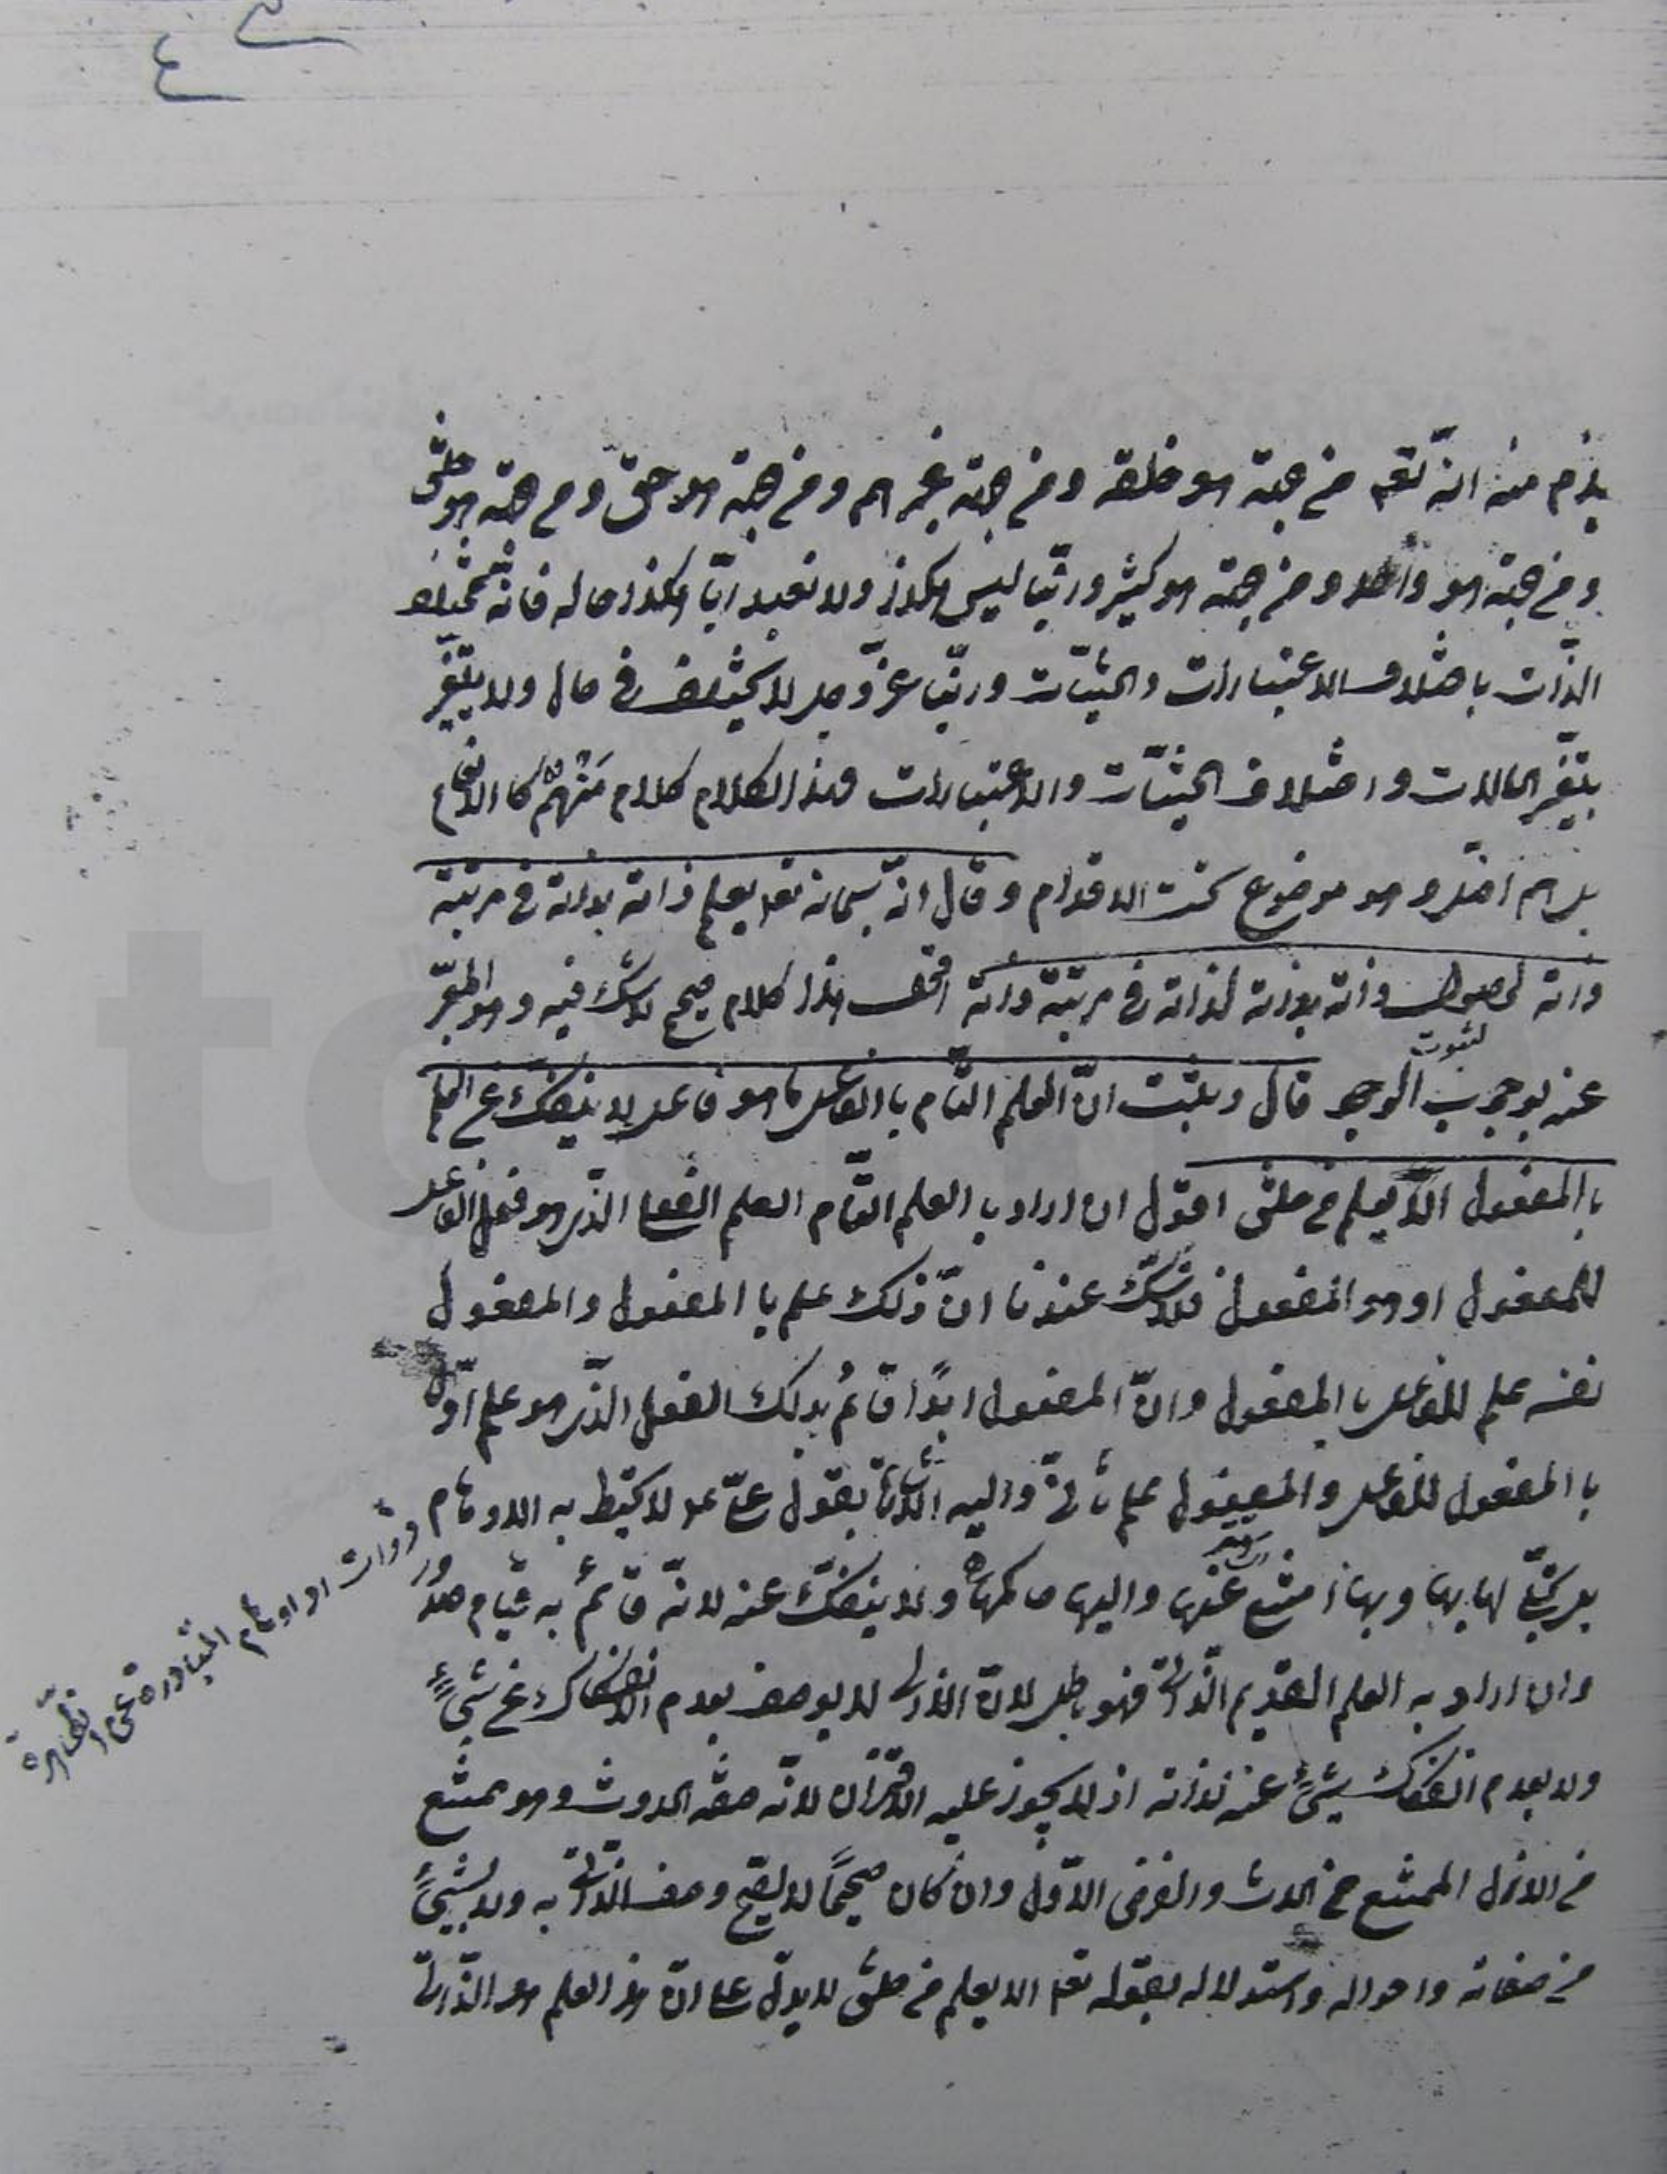 يلزم منه انه تعم من جهة هو خلقه ومن جهة غيرهم ومن جهة هو حق ومن جهة هو خلق
ومن جهة هو واحد ومن جهة هو كثير وربّنا ليس هكذا ولا نعبد ربّا هكذا حاله فانه مختلف
الذّات باختلاف الاعتبارات والحيثيّات وربّنا عزّ وجل لا يختلف في حال ولا يتغيّر
بتغيّر الحالات واختلاف الحيثيّات والاعتبارات وهذا الكلام كلام متهم كالانعام
بل هم اضلّ وهو موضوع تحت الاقدام وقال انّه سبحانه تعم يعلم ذاته بذاته في مرتبة
ذاته لحصول ذاته بذاته لذاته في مرتبة ذاته اقول هذا كلام صحيح لا شك فيه وهو المعبّر
عنه بوجوب الوجود قال ويثبت انّ العلم التام باالفاعل بما هو فاعل لا ينفكّ عن العلم
لثبوت
باالمفعول الا يعلم من خلق اقول ان اراد بالعلم التّام العلم الفعلي الذي هو فعل الفاعل
للمفعول او هو المفعول فلا شكّ عندنا انّ ذلك علم باالمفعول والمفعول
نفسه علم للفاعل باالمفعول وانّ المفعول ابدًا قائم بذلك الفعل الذي هو علم اوّل
باالمفعول للفاعل والمفعول علم ثانٍ واليه الاشارة بقول عليّ عم لا تحيط به الاوهام
بل تجلّى لها بها وبها امتنع منها واليها حاكمها ولا ينفكّ عنه لانّه قائم به قيام صدور
ذوات او اوهام المتبادرة عن الظاهرة
وان اراد به العلم القديم الذّاتي فهو باطل لانّ الذاتي لا يوصف بعدم الانفكاك عن شيءٍ
ولا بعدم انفكاك شيءٍ عنه لذاته اذ لا يجوز عليه الاقتران لانّه صفة الحدوث وهو ممتنع
من الازل الممتنع من الحدث والفرض الاوّل وان كان صحيحًا لا يصحّ وصف الذّاتي به ولا بشيءٍ
من صفاته واحواله واستدلاله بقوله تعم الا يعلم من خلق لا يدلّ على انّ هذا العلم هو الذّاتي